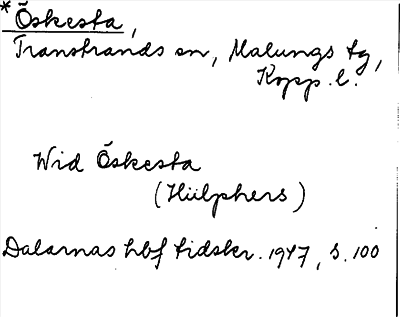 * Öskesta,
Transtrands sn, Malungs tg,
Kopp. l.
Wid Öskesta
(Hülphers)
Dalarnas hbf tidskr. 1947, s. 100